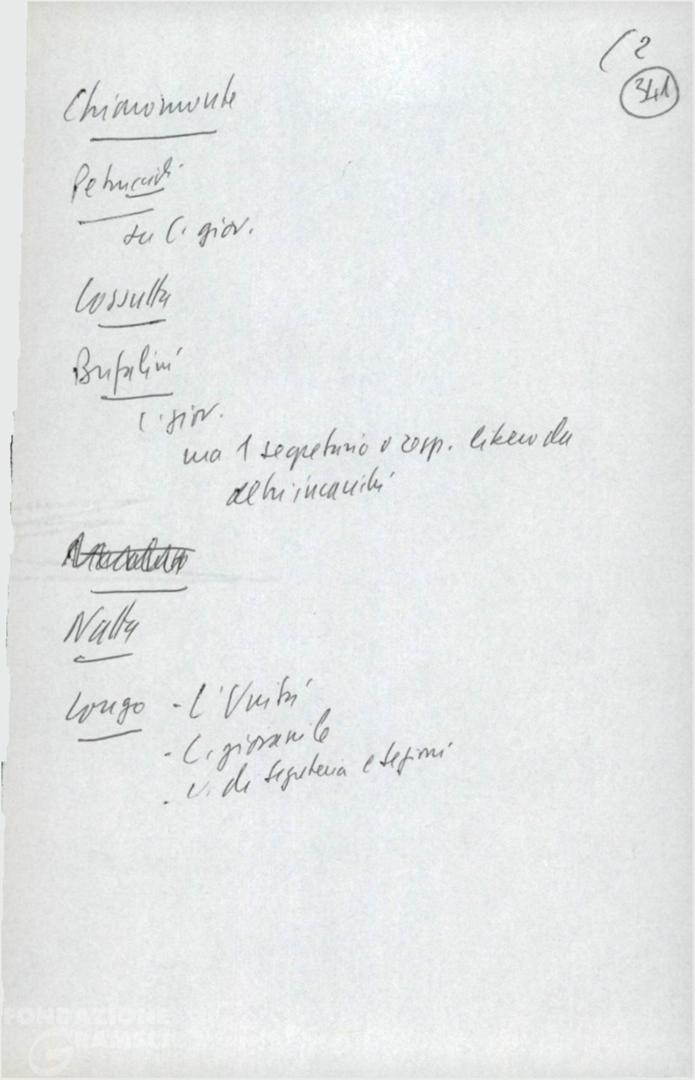 ( 2
341
Chiaromonte
Petruccioli
su C. giov.
Cossutta
Bufalini
C. giov.
ma 1 segretario o resp. libero da
altri incarichi
Natta
Longo - L'Unità
- C. giovanile
- V. di segreteria e sezioni
FONDAZIONE
GRAMSCI